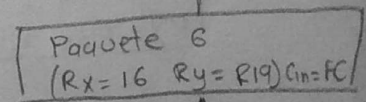 Paquete 6
(Rx=16 Ry=R19) Cin=FC